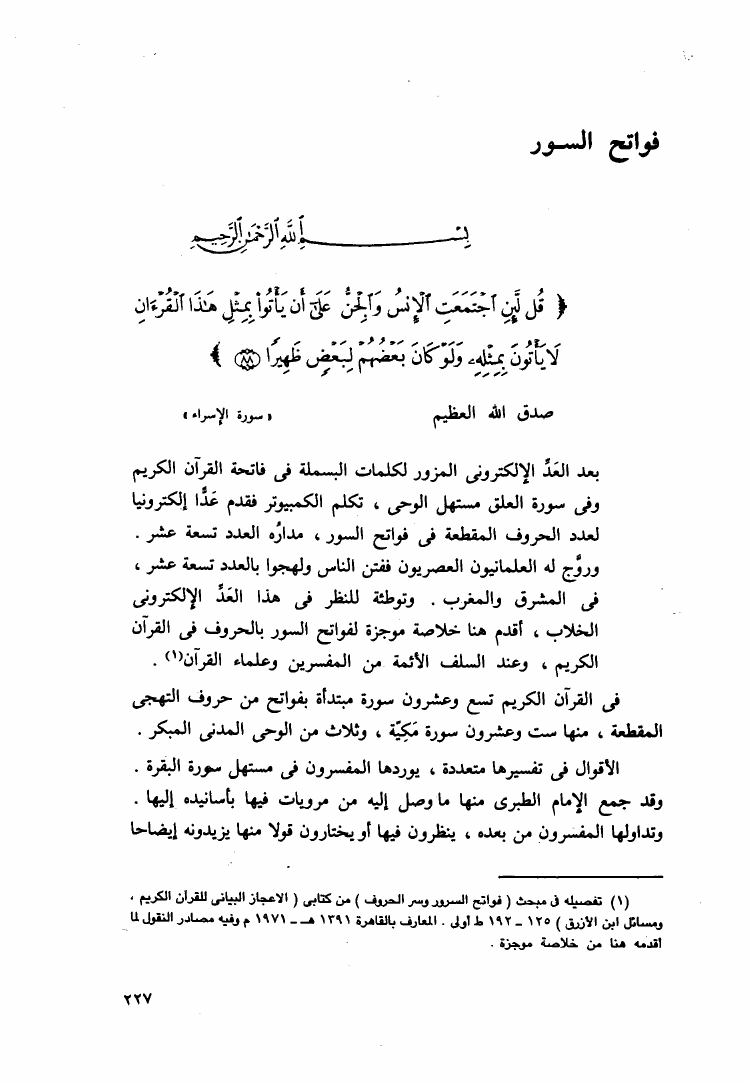 فواتح السور
بِسْمِ ٱللَّهِ ٱلرَّحْمَٰنِ ٱلرَّحِيمِ
﴿ قُل لَّئِنِ ٱجْتَمَعَتِ ٱلْإِنسُ وَٱلْجِنُّ عَلَىٰٓ أَن يَأْتُوا۟ بِمِثْلِ هَٰذَا ٱلْقُرْءَانِ
لَا يَأْتُونَ بِمِثْلِهِۦ وَلَوْ كَانَ بَعْضُهُمْ لِبَعْضٍ ظَهِيرًا ٨٨ ﴾
صدق الله العظيم « سورة الإسراء »
بعد العَدِّ الإلكترونى المزور لكلمات البسملة فى فاتحة القرآن الكريم
وفى سورة العلق مستهل الوحى ، تكلم الكمبيوتر فقدم عَدًّا إلكترونيا
لعدد الحروف المقطعة فى فواتح السور ، مدارُه العدد تسعة عشر .
وروَّج له العلمانيون العصريون ففتن الناس ولهجوا بالعدد تسعة عشر ،
فى المشرق والمغرب . وتوطئة للنظر فى هذا العَدِّ الإلكترونى
الخلاب ، أقدم هنا خلاصة موجزة لفواتح السور بالحروف فى القرآن
الكريم ، وعند السلف الأئمة من المفسرين وعلماء القرآن(١) .
فى القرآن الكريم تسع وعشرون سورة مبتدأة بفواتح من حروف التهجى
المقطعة ، منها ست وعشرون سورة مَكيّة ، وثلاث من الوحى المدنى المبكر .
الأقوال فى تفسيرها متعددة ، يوردها المفسرون فى مستهل سورة البقرة .
وقد جمع الإمام الطبرى منها ما وصل إليه من مرويات فيها بأسانيده إليها .
وتداولها المفسرون من بعده ، ينظرون فيها أو يختارون قولا منها يزيدونه إيضاحا
(١) تفصيله فى مبحث ( فواتح السرور وسر الحروف ) من كتابى ( الاعجاز البيانى للقرآن الكريم ،
ومسائل ابن الأزرق ) ١٢٥ ـ ١٩٢ ط أولى . المعارف بالقاهرة ١٣٩١ هـ ـ ١٩٧١ م وفيه مصادر النقول لما
أقدمه هنا من خلاصة موجزة .
٢٢٧